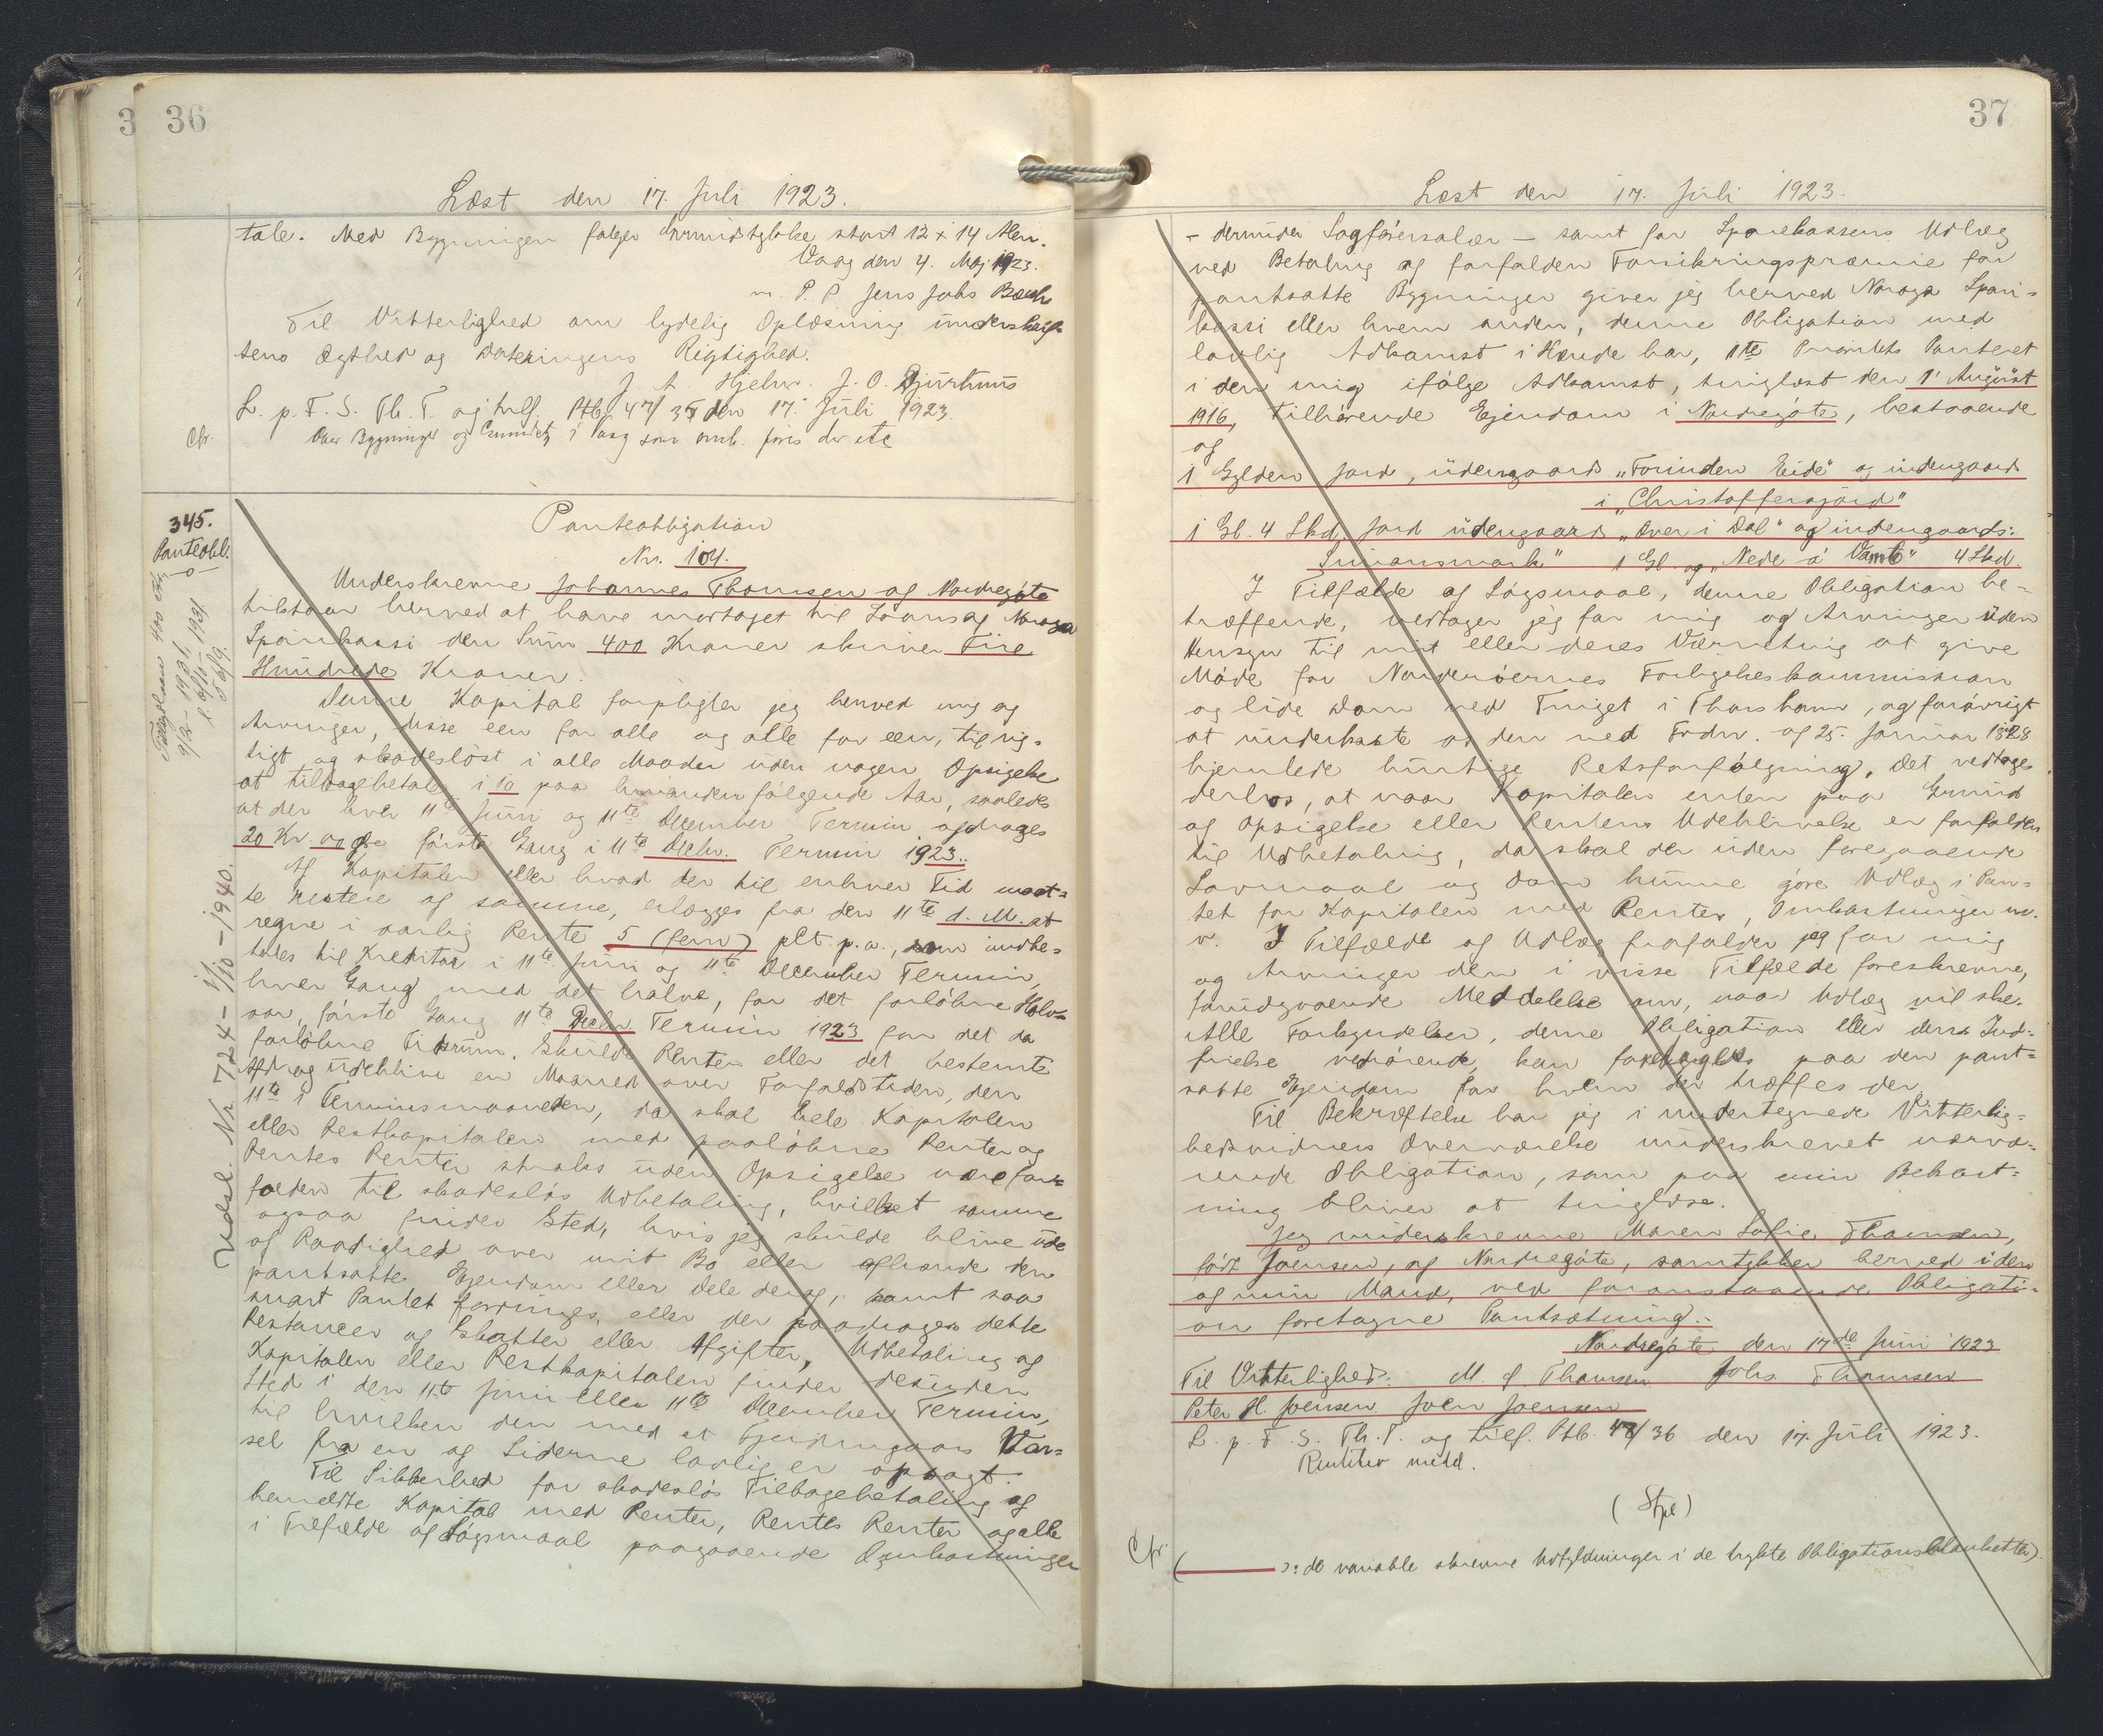 3 36
Læst den 17. Juli 1923.
tale. Med Bygningen følger Grundstykke stort 12 x 14 Alen.
Vaag den 4. Maj 1923.
m. P. P. Jens Johs Bæch
Til Vitterlighed om lydelig Oplæsning underskrif-
tens Ægthed og Dateringens Rigtighed.
J. A. Hjelm. J. O. Djurhuus
L. p. F. S. Th. T. og tilf. Ptb. 47/35 den 17. Juli 1923.
Chr.
Over Bygninger og Grundstk i Vaag som omh. foris der etc
345.
Panteobl.
-o-
Panteobligation
Nr. 104.
Underskrevne Johannes Thomsen af Nordregöte
tilstaar herved at have modtaget til Laans af Noraga
Sparikassi den Sum 400 Kroner skriver Fire
Hundrede Kroner.
Denne Kapital forpligter jeg herved mig og
Arvinger, disse een for alle og alle for een, til rig-
tigt og skadeslöst i alle Maader uden nogen Opsigelse
at tilbagebetale i 10 paa hinanden følgende Aar, saaledes
at der hver 11te Juni og 11te December Termin afdrages
20 Kr. 00 Øre første Gang i 11te Decbr. Termin 1923.
Af Kapitalen eller hvad der til enhver Tid maat-
te restere af samme, erlægges fra den 11te d. M. at
regne i aarlig Rente 5 (fem) pCt p.a., som indbe-
tales til Kreditor i 11te Juni og 11te December Termin,
hver Gang med det halve, for det forløbne Halv-
aar, første Gang 11te Decbr. Termin 1923 for det da
forløbne Tidsrum. Skulde Renten eller det bestemte
Afdrag udeblive en Maaned over Forfaldstiden, den
11te i Terminsmaaneden, da skal hele Kapitalen
eller Restkapitalen med paaløbne Renter og
Rentes Renter straks uden Opsigelse være for-
falden til skadesløs Udbetaling, hvilket samme
ogsaa finder Sted, hvis jeg skulde blive ude
af Raadighed over mit Bo eller afhænde den
pantsatte Ejendom eller Dele deraf, samt saa
snart Pantet forringes, eller der paadrages dette
Restancer af Skatter eller Afgifter, Udbetaling af
Kapitalen eller Restkapitalen finder desuden
Sted i den 11te Juni eller 11te December Termin,
til hvilken den med et Fjerdingaars Var-
sel fra en af Siderne lovlig er opsagt.
Til Sikkerhed for skadesløs Tilbagebetaling af
bemeldte Kapital med Renter, Rentes Renter og alle
i Tilfælde af Søgsmaal paagaaende Omkostninger
Udsl. Nr. 724 - 1/10 - 1940.
37
Læst den 17. Juli 1923.
- derunder Sagførersalær - samt for Sparekassens Udlæg
ved Betaling af forfalden Forsikringspræmie for
pantsatte Bygninger giver jeg herved Noraga Spari-
kassi eller hvem anden, denne Obligation med
lovlig Adkomst i Hænde har, 1te Prioritets Panteret
i den mig ifølge Adkomst, tinglæst den 1' August
1916, tilhørende Ejendom i Nordregöte, bestaaende
af
1 Gylden Jord, üdengaards "Forinden Eide" og indengaards
i "Christoffersjörd"
1 Gl. 4 Skd. Jord üdengaards "Over i Dal" og indengaards:
Simonsmark" 1 Gl. og "Nede á Vamb" 4 Skd.
I Tilfælde af Søgsmaal, denne Obligation be-
træffende, vedtager jeg for mig og Arvinger uden
Hensyn til mit eller deres Værneting at give
Møde for Nordreøernes Forligelseskommission
og lide Dom ved Tinget i Thorshavn, og forøvrigt
at underkaste os den ved Frdn. af 25. Januar 1828
hjemlede hurtige Retsforfølgning. Det vedtages
derhos, at naar Kapitalen enten paa Grund
af Opsigelse eller Rentens Udeblivelse er forfalden
til Udbetaling, da skal der uden foregaaende
Lovmaal og Dom kunne gøre Udlæg i Pan-
tet for Kapitalen med Renter, Omkostninger m.
v. I Tilfælde af Udlæg frafalder jeg for mig
og Arvinger den i visse Tilfælde foreskrevne,
forudgaaende Meddelelse om, naar Udlæg vil ske.
Alle Forkyndelser, denne Obligation eller dens Ind-
frielse vedrørende, kan foretages paa den pant-
satte Ejendom for hvem der træffes der.
Til Bekræftelse har jeg i undertegnede Vitterlig-
hedsvidners Overværelse underskrevet nærvæ-
rende Obligation, som paa min Bekost-
ning bliver at tinglæse.
Jeg underskrevne Maren Sofie Thomsen,
født Joensen, af Nordregöte, samtykker herved i den
af min Mand, ved foranstaaende Obligati-
on foretagne Pantsætning.
Nordregöte den 17de Juni 1923
Til Vitterlighed: M. S. Thomsen Johs. Thomsen
Peter H. Joensen Joen Joensen
L. p. F. S. Th. T. og tilf. Ptb. 47/36 den 17. Juli 1923.
Rentebr. medd.
(Stpl)
Chr.
( ɔ: de variable skrevne Udfyldninger i de trykte Obligationsblanketter).